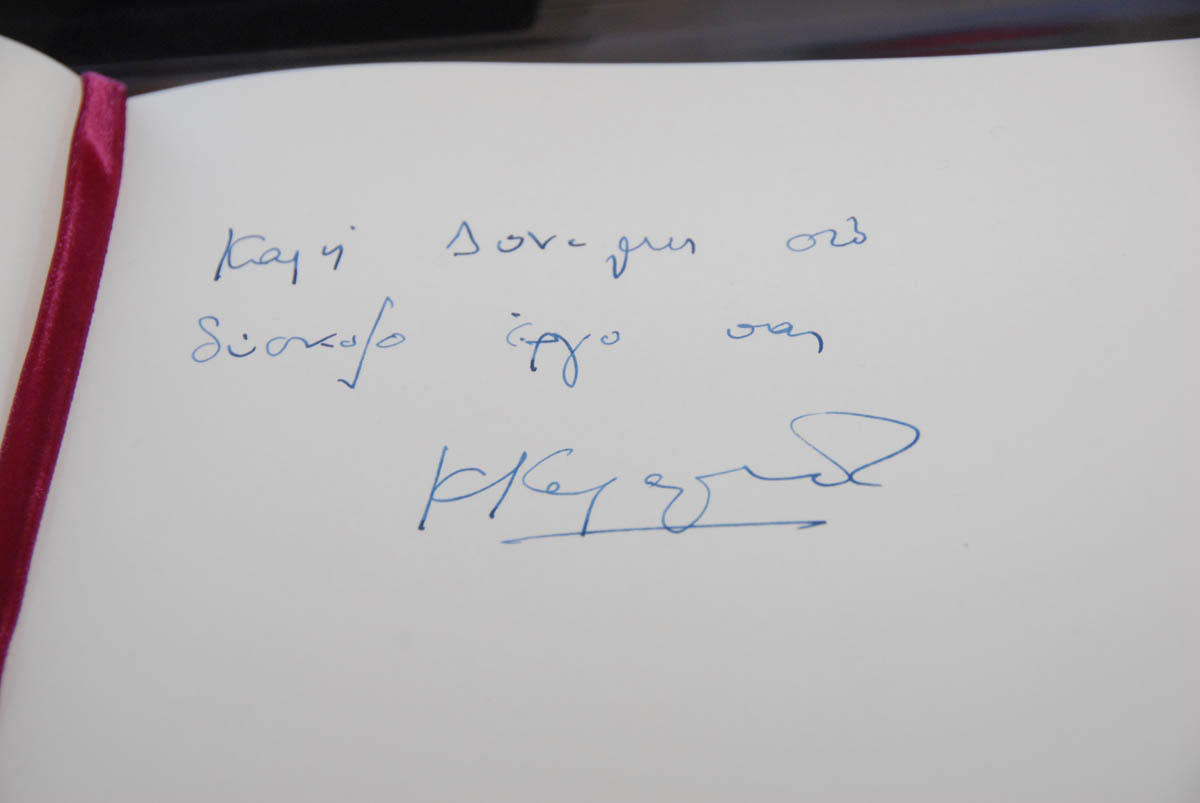 Καλή Δύναμη στό
δύσκολο έργο σας